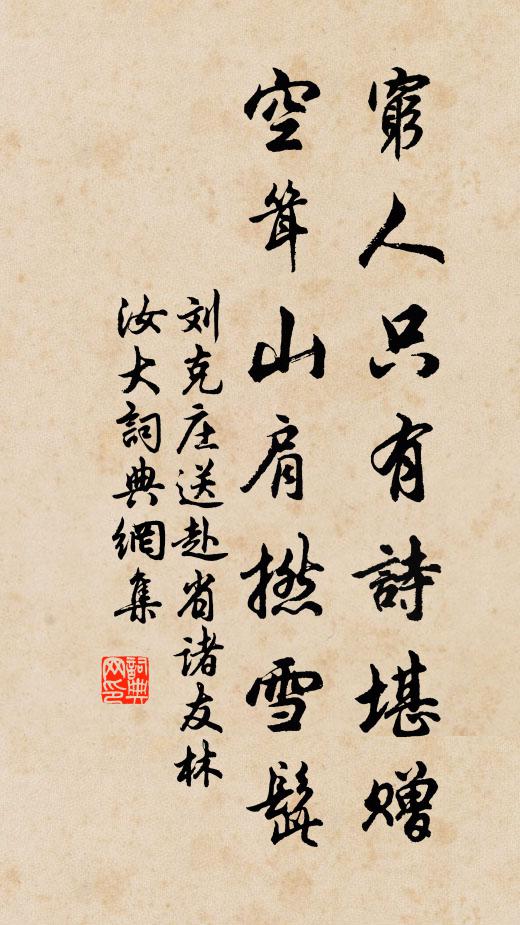 窮人只有詩堪贈
空耸山肩撚雪髭
刘克庄送赴省诸友林
汝大詞典網集
詞典网印